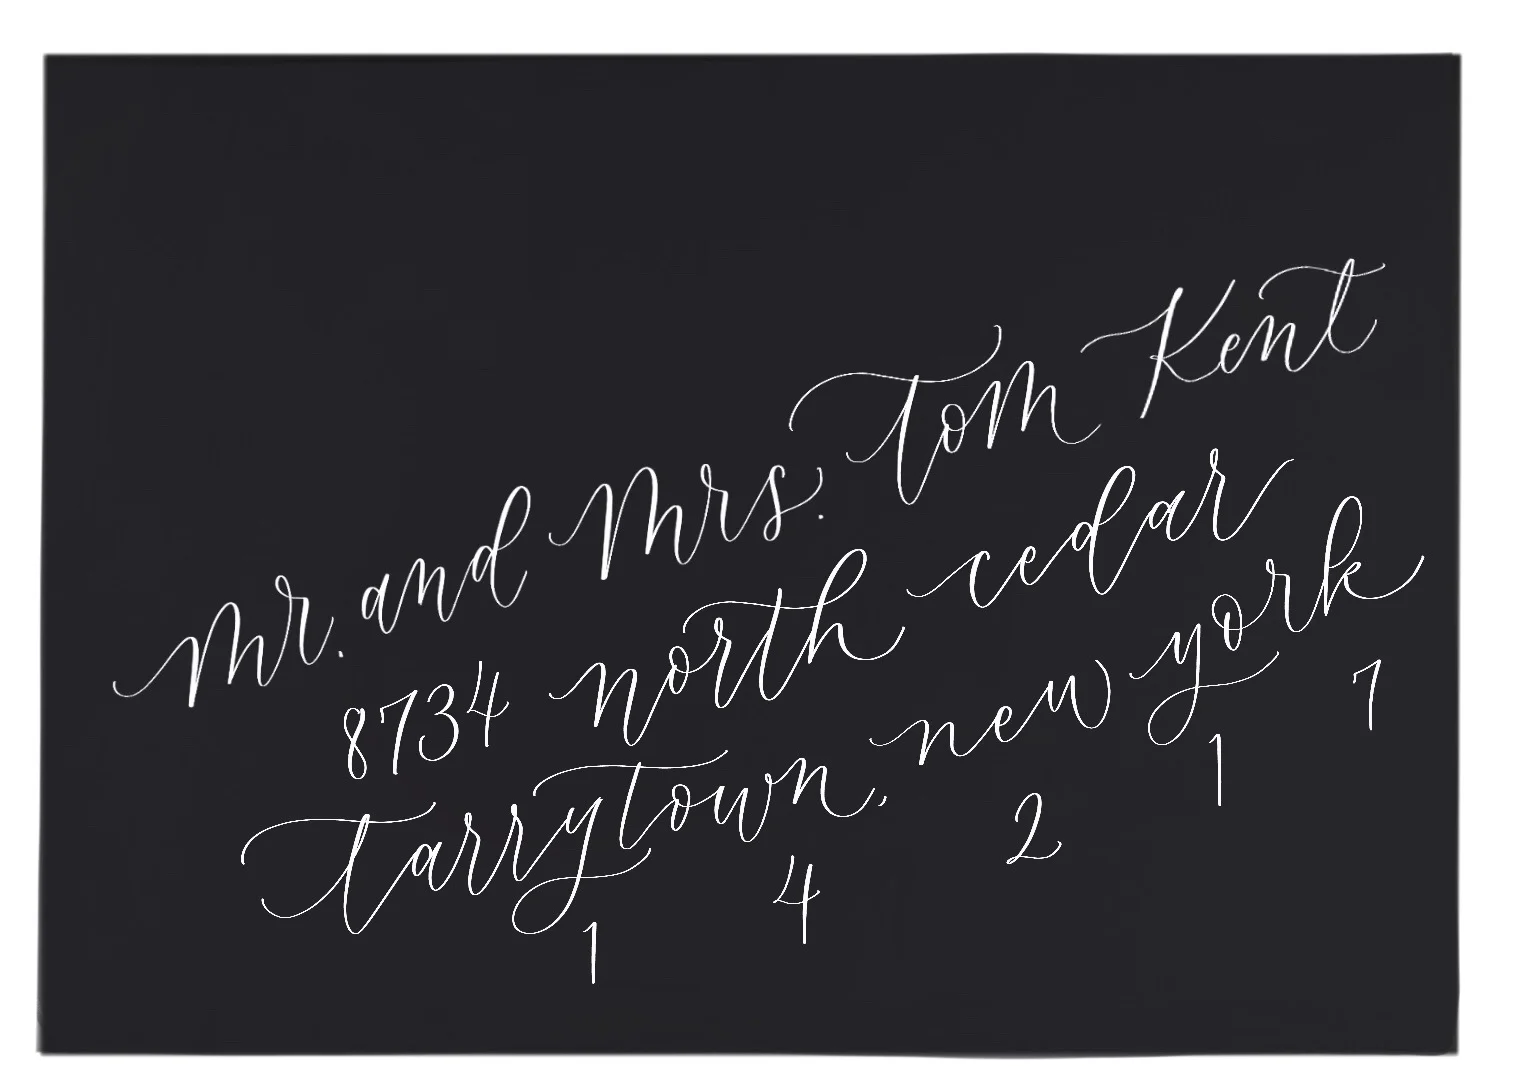 Mr. and Mrs. Tom Kent
8734 north cedar
tarrytown, new york
1 4 2 1 7